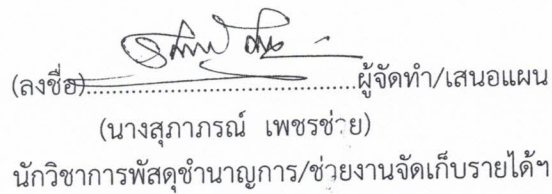 (ลงชื่อ)........................................ผู้จัดทำ/เสนอแผน
(นางสุภาภรณ์ เพชรช่วย)
นักวิชาการพัสดุชำนาญการ/ช่วยงานจัดเก็บรายได้ฯ